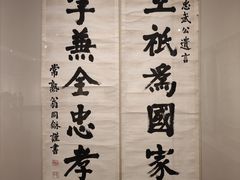 忠武公遺言
祇為國家
字兼全忠孝
常熟翁同龢謹書